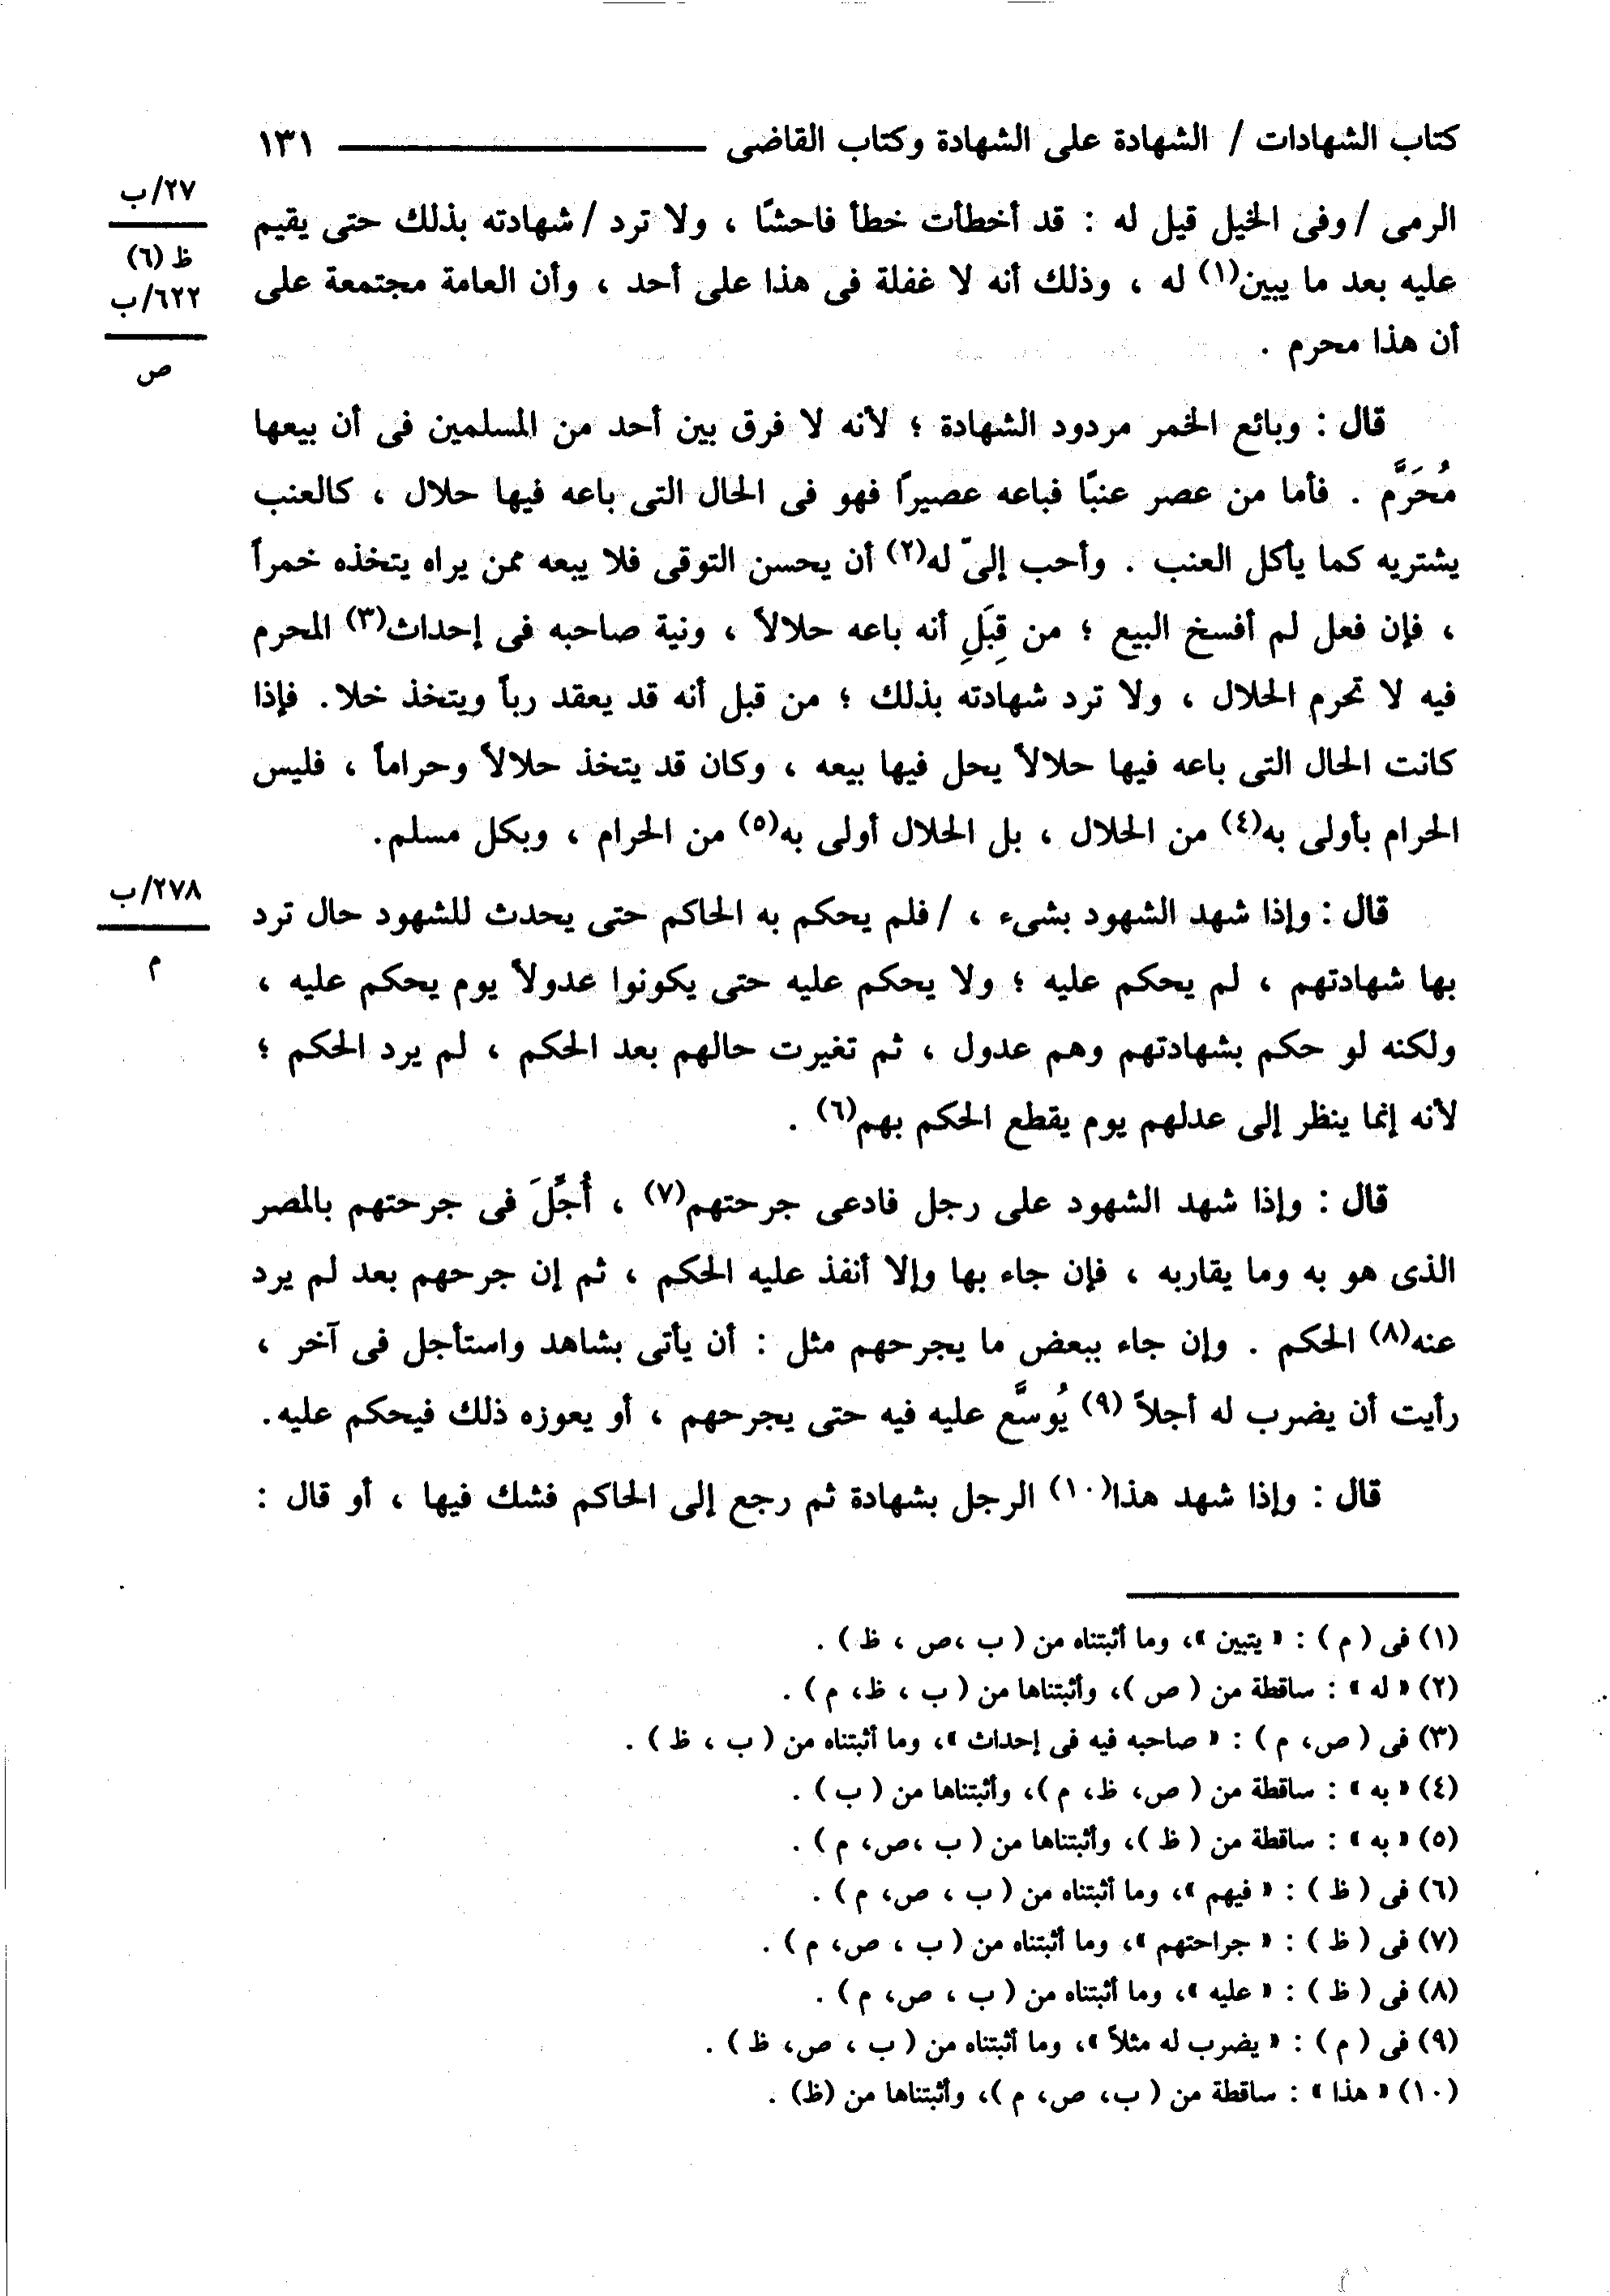 كتاب الشهادات / الشهادة على الشهادة وكتاب القاضى ١٣١
٢٧/ب
ظ (٦)
٦٢٢/ب
ص
الرمى / وفى الخيل قيل له : قد أخطأت خطأ فاحشًا ، ولا ترد / شهادته بذلك حتى يقيم
عليه بعد ما يبين(١) له ، وذلك أنه لا غفلة فى هذا على أحد ، وأن العامة مجتمعة على
أن هذا محرم .
قال : وبائع الخمر مردود الشهادة ؛ لأنه لا فرق بين أحد من المسلمين فى أن بيعها
مُحَرَّم . فأما من عصر عنبًا فباعه عصيراً فهو فى الحال التى باعه فيها حلال ، كالعنب
يشتريه كما يأكل العنب . وأحب إلىّ له(٢) أن يحسن التوقى فلا يبعه ممن يراه يتخذه خمراً
، فإن فعل لم أفسخ البيع ؛ من قِبَلِ أنه باعه حلالاً ، ونية صاحبه فى إحداث(٣) المحرم
فيه لا تحرم الحلال ، ولا ترد شهادته بذلك ؛ من قبل أنه قد يعقد رباً ويتخذ خلا. فإذا
كانت الحال التى باعه فيها حلالاً يحل فيها بيعه ، وكان قد يتخذ حلالاً وحراماً ، فليس
الحرام بأولى به(٤) من الحلال ، بل الحلال أولى به(٥) من الحرام ، وبكل مسلم.
٢٧٨/ب
م
قال : وإذا شهد الشهود بشىء ، / فلم يحكم به الحاكم حتى يحدث للشهود حال ترد
بها شهادتهم ، لم يحكم عليه ؛ ولا يحكم عليه حتى يكونوا عدولاً يوم يحكم عليه ،
ولكنه لو حكم بشهادتهم وهم عدول ، ثم تغيرت حالهم بعد الحكم ، لم يرد الحكم ؛
لأنه إنما ينظر إلى عدلهم يوم يقطع الحكم بهم(٦) .
قال : وإذا شهد الشهود على رجل فادعى جرحتهم(٧) ، أُجِّلَ فى جرحتهم بالمصر
الذى هو به وما يقاربه ، فإن جاء بها وإلا أنفذ عليه الحكم ، ثم إن جرحهم بعد لم يرد
عنه(٨) الحكم . وإن جاء ببعض ما يجرحهم مثل : أن يأتى بشاهد واستأجل فى آخر ،
رأيت أن يضرب له أجلاً (٩) يُوسَّع عليه فيه حتى يجرحهم ، أو يعوزه ذلك فيحكم عليه.
قال : وإذا شهد هذا(١٠) الرجل بشهادة ثم رجع إلى الحاكم فشك فيها ، أو قال :
(١) فى ( م ) : « يتبين »، وما أثبتناه من ( ب ،ص ، ظ ) .
(٢) « له » : ساقطة من ( ص )، وأثبتناها من ( ب ، ظ، م ) .
(٣) فى ( ص، م ) : « صاحبه فيه فى إحداث »، وما أثبتناه من ( ب ، ظ ) .
(٤) « به » : ساقطة من ( ص، ظ، م )، وأثبتناها من ( ب ) .
(٥) « به » : ساقطة من ( ظ )، وأثبتناها من ( ب ،ص، م ) .
(٦) فى ( ظ ) : « فيهم »، وما أثبتناه من ( ب ، ص، م ) .
(٧) فى ( ظ ) : « جراحتهم »، وما أثبتناه من ( ب ، ص، م ) .
(٨) فى ( ظ ) : « عليه »، وما أثبتناه من ( ب ، ص، م ) .
(٩) فى ( م ) : « يضرب له مثلاً »، وما أثبتناه من ( ب ، ص، ظ ) .
(١٠) « هذا » : ساقطة من ( ب، ص، م )، وأثبتناها من (ظ) .